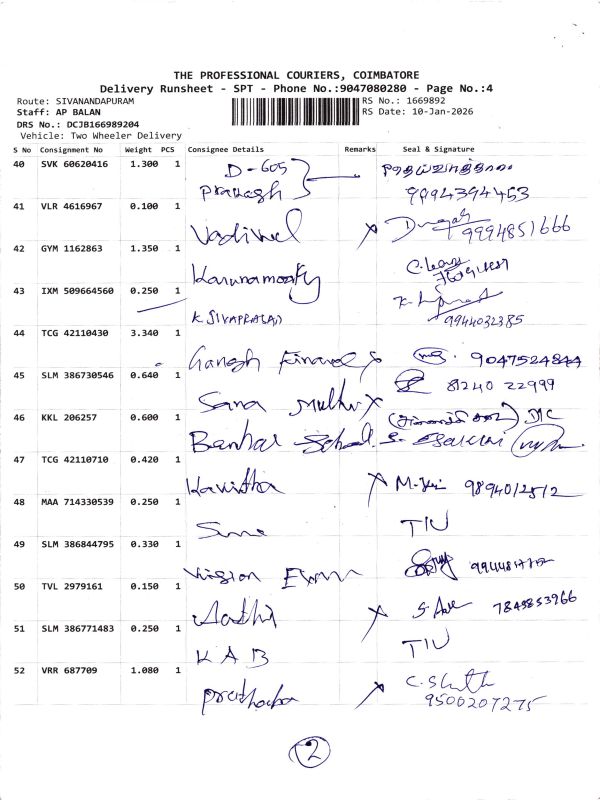 THE PROFESSIONAL COURIERS, COIMBATORE
Delivery Runsheet - SPT - Phone No.:9047080280 - Page No.:4
Route: SIVANANDAPURAM RS No.: 1669892
Staff: AP BALAN RS Date: 10-Jan-2026
DRS No.: DCJB166989204
Vehicle: Two Wheeler Delivery
S No Consignment No Weight PCS Consignee Details Remarks Seal & Signature
40 SVK 60620416 1.300 1 D-605
Prakash 9994394453
41 VLR 4616967 0.100 1 Vadivel 9994851666
42 GYM 1162863 1.350 1 Karunamoorthy
43 IXM 509664560 0.250 1 K SIVAPRASAD 9944032385
44 TCG 42110430 3.340 1 Ganesh Finance 9047524844
45 SLM 386730546 0.640 1 Sana Muthu 81240 22999
46 KKL 206257 0.600 1 School
47 TCG 42110710 0.420 1 Kavitha 9894012512
48 MAA 714330539 0.250 1 TIU
49 SLM 386844795 0.330 1 Vission
50 TVL 2979161 0.150 1 Aathi 7845853966
51 SLM 386771483 0.250 1 KAB TIU
52 VRR 687709 1.080 1 9500207275
2